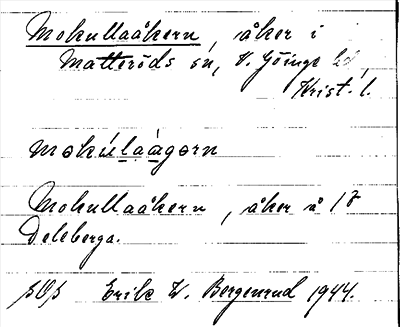 Mokullaåkern, åker i
Matteröds sn, V. Göinge hd,
Krist. l.
mokúlaágorn
Mokullaåkern, åker å 17
Deleberga.
Erik W. Bergenrud 1944.